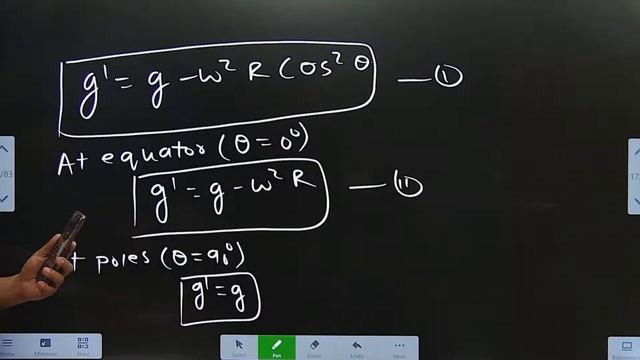 g' = g - ω² R Cos² θ — ①
At equator (θ = 0°)
g' = g - ω² R — ⑪
t poles (θ = 90°)
g' = g
/83
17/
Menu
Minimize
Share
Select
Pen
Eraser
Undo
More